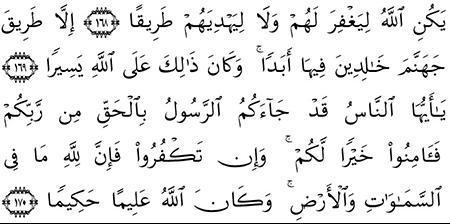 يَكُنِ ٱللَّهُ لِيَغْفِرَ لَهُمْ وَلَا لِيَهْدِيَهُمْ طَرِيقًا ١٦٨ إِلَّا طَرِيقَ
جَهَنَّمَ خَـٰلِدِينَ فِيهَآ أَبَدًا ۚ وَكَانَ ذَٰلِكَ عَلَى ٱللَّهِ يَسِيرًا ١٦٩
يَـٰٓأَيُّهَا ٱلنَّاسُ قَدْ جَآءَكُمُ ٱلرَّسُولُ بِٱلْحَقِّ مِن رَّبِّكُمْ
فَـَٔامِنُوا۟ خَيْرًا لَّكُمْ ۚ وَإِن تَكْفُرُوا۟ فَإِنَّ لِلَّهِ مَا فِى
ٱلسَّمَـٰوَٰتِ وَٱلْأَرْضِ ۚ وَكَانَ ٱللَّهُ عَلِيمًا حَكِيمًا ١٧٥